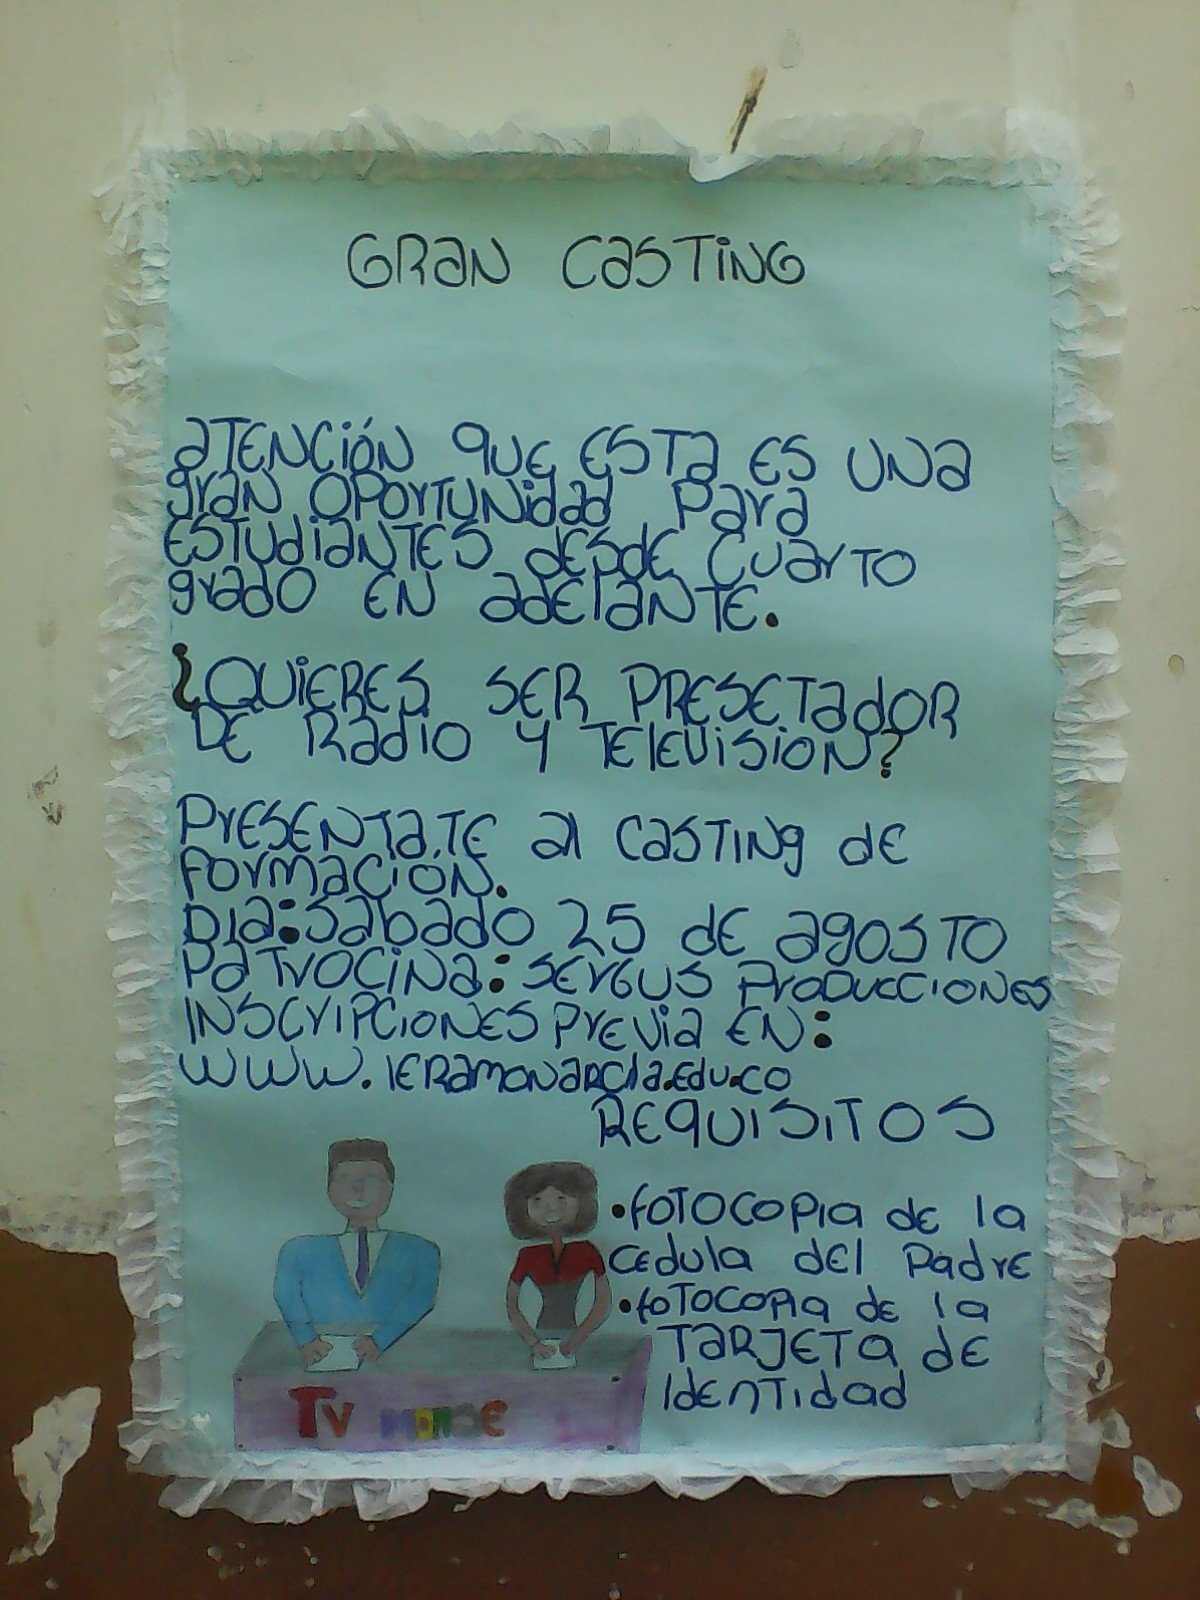 GRAN CASTiNG
ATENCiÓN QUE ESTA ES UNA
gran OPOrTUNidad Para
ESTUdiaNTES dESdE CUarTO
grado EN adElaNTE.
¿QUiERES SER PRESETadOR
DE Radio Y TElEVISION?
PrESENTaTE al CaSTINg dE
FOrmaCiÓN.
Dia: Sabado 25 dE agOSTO
PaTrOCiNa: SErGUS PrODUCCIONES
INSCrIPCIONES PrEVia EN:
WWW.IERamONarcIa.Edu.co
REQUISITOS
•fOTOCOPIa dE la
CEdUla dEl PadrE
•fOTOCOPIa dE la
TaRJETa dE
IdENTIdad
TV MONSE